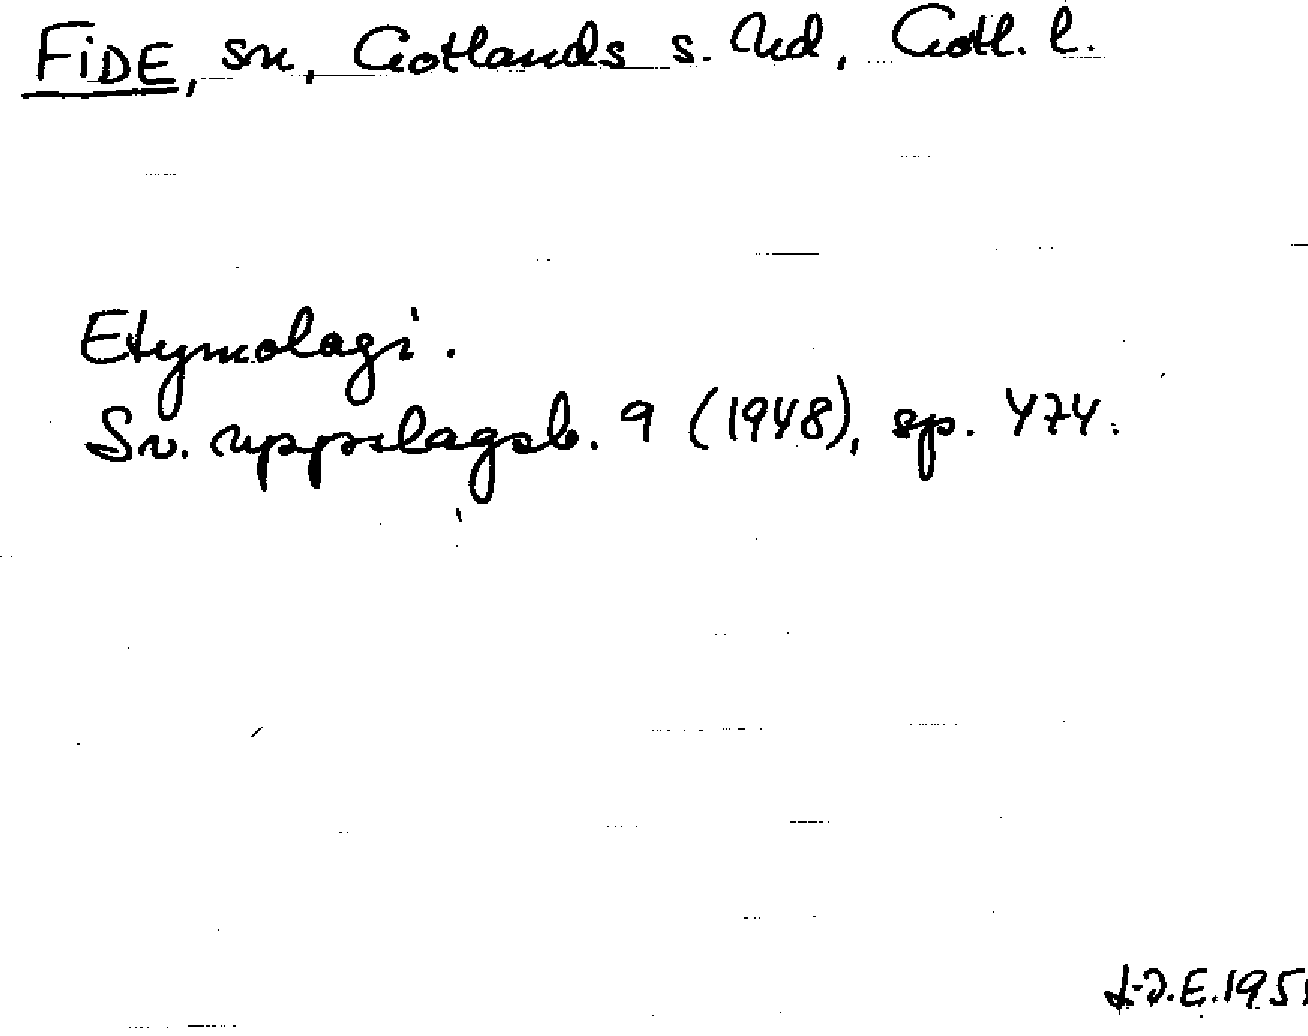 FIDE, sn, Gotlands s. hd, Gotl. l.
Etymologi.
Sv. uppslagsb. 9 (1948), sp. 474.
E. 1951